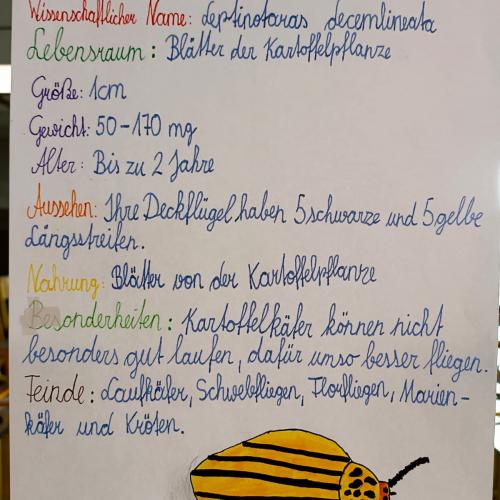 Wissenschaftlicher Name: Leptinotaras decemlineata
Lebensraum: Blätter der Kartoffelpflanze
Größe: 1cm
Gewicht: 50-170 mg
Alter: Bis zu 2 Jahre
Aussehen: Ihre Deckflügel haben 5 schwarze und 5 gelbe
Längsstreifen.
Nahrung: Blätter von der Kartoffelpflanze
Besonderheiten: Kartoffelkäfer können nicht
besonders gut laufen, dafür umso besser fliegen.
Feinde: Laufkäfer, Schwebfliegen, Florfliegen, Marien-
käfer und Kröten.